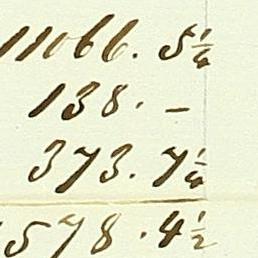 11066. 5¼
138. –
373. 7¼
578. 4½